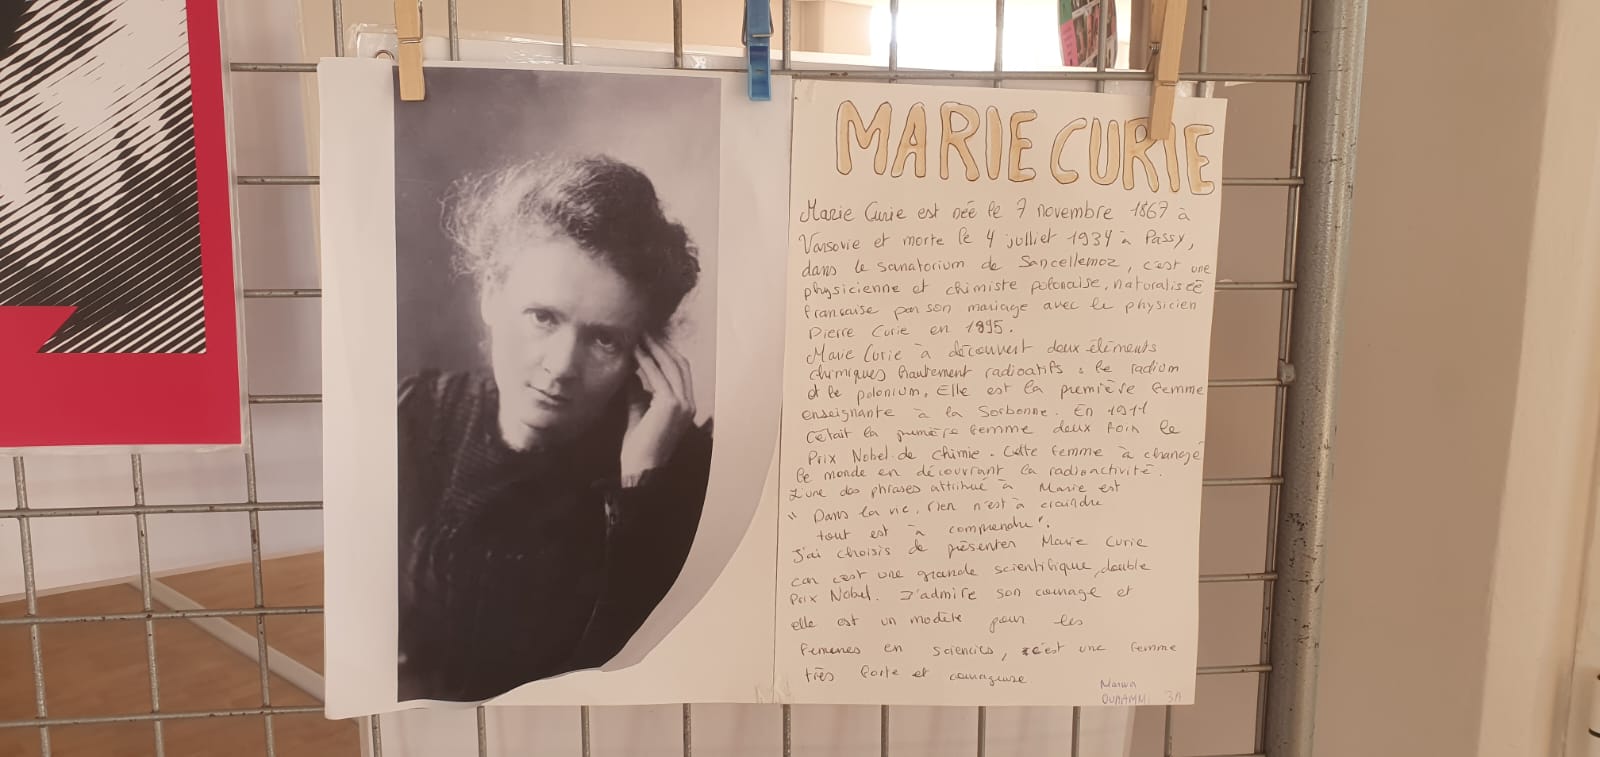 MARIE CURIE
Marie Curie est née le 7 novembre 1867 à
Varsovie et morte le 4 julliet 1934 à Passy,
dans le sanatorium de Sancellemoz, c'est une
physicienne et chimiste polonaise, naturalisée
française par son mariage avec le physicien
Pierre Curie en 1895.
Marie Curie à découvert deux éléments
chimiques hautement radioatifs : le radium
et le polonium. Elle est la première femme
enseignante à la Sorbonne. En 1911
C'était la première femme deux foin le
Prix Nobel de chimie. Cette femme à changé
le monde en découvrant la radioactivité.
L'une des phrases attribué à Marie est
"Dans la vie, rien n'est à craindre
tout est à comprendre".
J'ai choisis de présenter Marie Curie
car c'est une grande scientifique, double
Prix Nobel. J'admire son courage et
elle est un modèle pour les
femmes en sciences, c'est une femme
très forte et courageuse
Marwa
OUAAMMI 3A